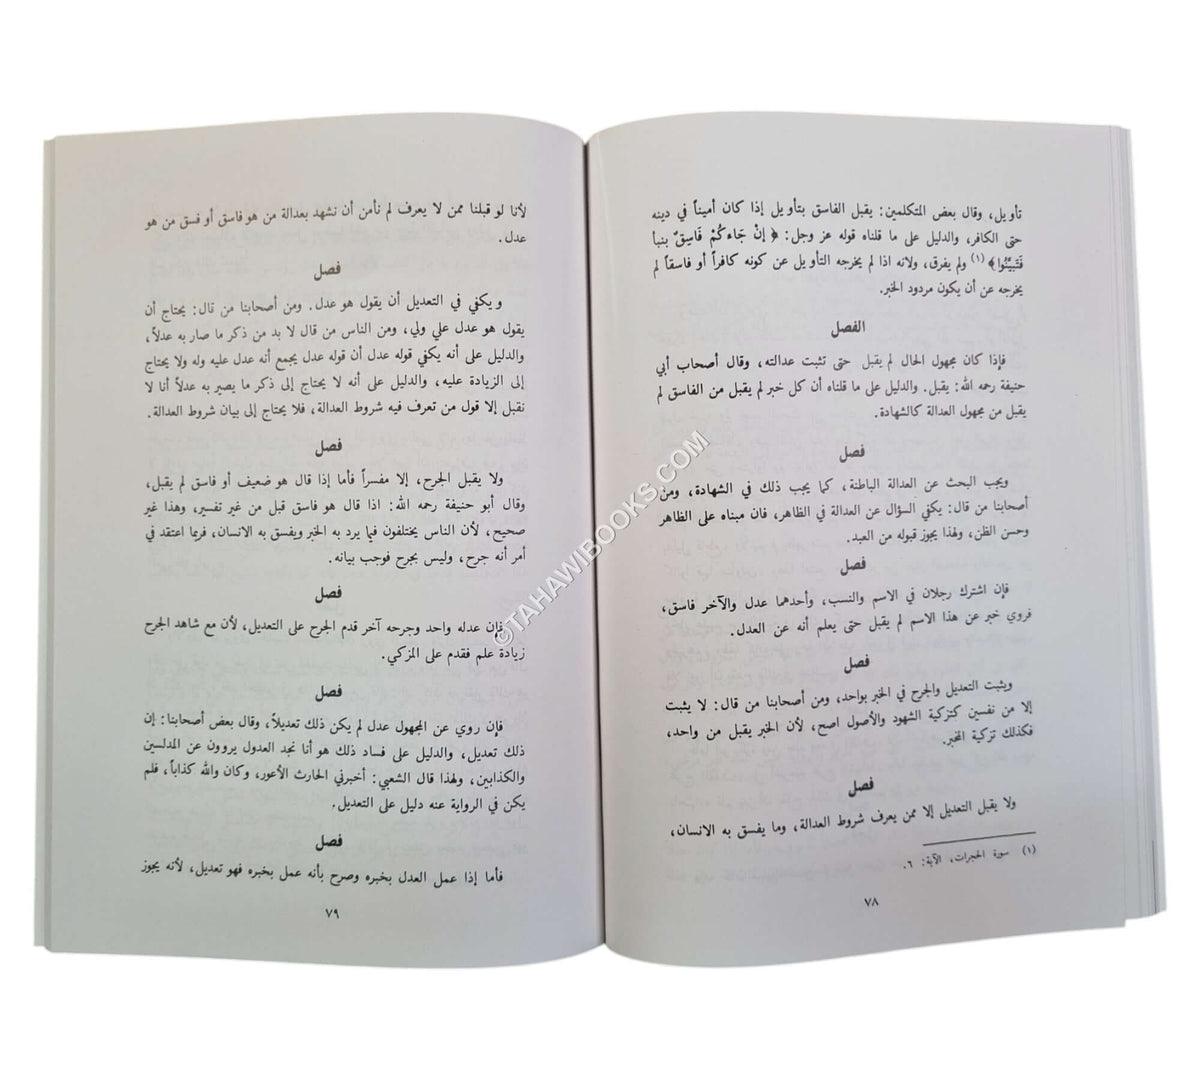 تأويل، وقال بعض المتكلمين: يقبل الفاسق بتأويل إذا كان أميناً في دينه
حتى الكافر، والدليل على ما قلناه قوله عز وجل: ﴿ إنْ جَاءكُمْ فَاسِقٌ بنبأ
فَتَبيَّنُوا﴾ (١) ولم يفرق، ولانه اذا لم يخرجه التأويل عن كونه كافراً أو فاسقاً لم
يخرجه عن أن يكون مردود الخبر.
الفصل
فإذا كان مجهول الحال لم يقبل حتى تثبت عدالته، وقال أصحاب أبي
حنيفة رحمه الله: يقبل. والدليل على ما قلناه أن كل خبر لم يقبل من الفاسق لم
يقبل من مجهول العدالة كالشهادة.
فصل
ويجب البحث عن العدالة الباطنة، كما يجب ذلك في الشهادة، ومن
أصحابنا من قال: يكفي السؤال عن العدالة في الظاهر، فان مبناه على الظاهر
وحسن الظن، ولهذا يجوز قبوله من العبد.
فصل
فإن اشترك رجلان في الاسم والنسب، وأحدهما عدل والآخر فاسق،
فروي خبر عن هذا الاسم لم يقبل حتى يعلم أنه عن العدل.
فصل
ويثبت التعديل والجرح في الخبر بواحد، ومن أصحابنا من قال: لا يثبت
إلا من نفسين كتزكية الشهود والأصول اصح، لأن الخبر يقبل من واحد،
فكذلك تزكية المخبر.
فصل
ولا يقبل التعديل إلا ممن يعرف شروط العدالة، وما يفسق به الانسان،
(١) سورة الحجرات، الآية: ٦.
٧٨
لأنا لو قبلنا ممن لا يعرف لم نأمن أن نشهد بعدالة من هو فاسق أو فسق من هو
عدل.
فصل
ويكفي في التعديل أن يقول هو عدل. ومن أصحابنا من قال: يحتاج أن
يقول هو عدل علي ولي، ومن الناس من قال لا بد من ذكر ما صار به عدلاً،
والدليل على أنه يكفي قوله عدل أن قوله عدل يجمع أنه عدل عليه وله ولا يحتاج
إلى الزيادة عليه، والدليل على أنه لا يحتاج إلى ذكر ما يصير به عدلاً أنا لا
نقبل إلا قول من تعرف فيه شروط العدالة، فلا يحتاج إلى بيان شروط العدالة.
فصل
ولا يقبل الجرح، إلا مفسراً فأما إذا قال هو ضعيف أو فاسق لم يقبل،
وقال أبو حنيفة رحمه الله: اذا قال هو فاسق قبل من غير تفسير، وهذا غير
صحيح، لأن الناس يختلفون فيما يرد به الخبر ويفسق به الانسان، فربما اعتقد في
أمر أنه جرح، وليس بجرح فوجب بيانه.
فصل
فإن عدله واحد وجرحه آخر قدم الجرح على التعديل، لأن مع شاهد الجرح
زيادة علم فقدم على المزكي.
فصل
فإن روي عن المجهول عدل لم يكن ذلك تعديلاً، وقال بعض أصحابنا: إن
ذلك تعديل، والدليل على فساد ذلك هو أنا نجد العدول يروون عن المدلسين
والكذابين، ولهذا قال الشعبي: أخبرني الحارث الأعور، وكان والله كذاباً، فلم
يكن في الرواية عنه دليل على التعديل.
فصل
فأما إذا عمل العدل بخبره وصرح بأنه عمل بخبره فهو تعديل، لأنه يجوز
٧٩
©TAHAWIBOOKS.COM